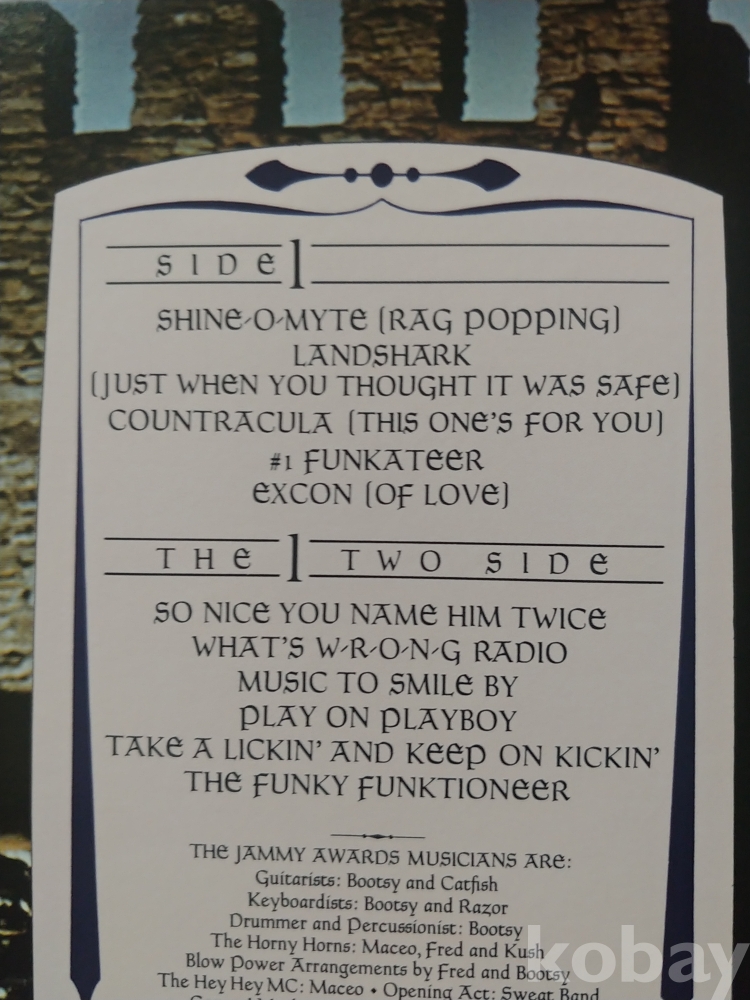 SIDE 1
SHINE-O-MYTE (RAG POPPING)
LANDSHARK
(JUST WHEN YOU THOUGHT IT WAS SAFE)
COUNTRACULA (THIS ONE'S FOR YOU)
#1 FUNKATEER
EXCON (OF LOVE)
THE 1 TWO SIDE
SO NICE YOU NAME HIM TWICE
WHAT'S W-R-O-N-G RADIO
MUSIC TO SMILE BY
PLAY ON PLAYBOY
TAKE A LICKIN' AND KEEP ON KICKIN'
THE FUNKY FUNKTIONEER
THE JAMMY AWARDS MUSICIANS ARE:
Guitarists: Bootsy and Catfish
Keyboardists: Bootsy and Razor
Drummer and Percussionist: Bootsy
The Horny Horns: Maceo, Fred and Kush
Blow Power Arrangements by Fred and Bootsy
The Hey Hey MC: Maceo • Opening Act: Sweat Band
kobay